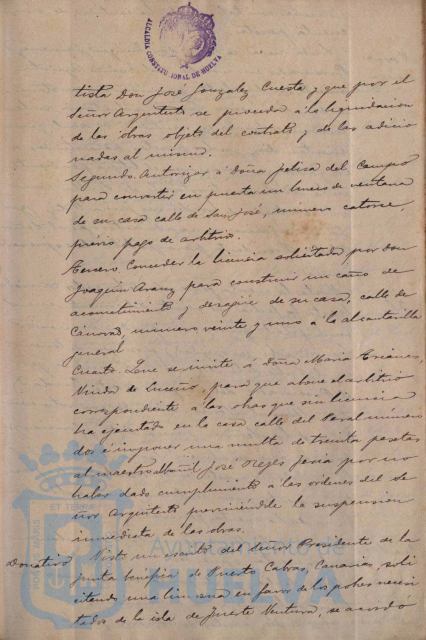 ALCALDIA CONSTITUCIONAL DE HUELVA
tista Don José Gonzalez Cuesta y que por el
Señor Arquitecto se proceda á la liquidacion
de las obras objeto del contrato y de las adicio
nadas al mismo.
Segundo. Autorizar á Doña Felisa del Campo
para convertir en puerta un hueco de ventana
de su casa calle de San José, número catorce,
previo pago de arbitrio.
Tercero. Conceder la licencia solicitada por Don
Joaquin Aranz para construir un caño de
acometimiento y desagüe de su casa, calle de
Cánovas, número veinte y uno á la alcantarilla
general
Cuarto. Que se invite á Doña Maria
Viuda de para que abone el arbitrio
correspondiente á las obras que sin licencia
ha ejecutado en la casa calle del número
dos é imponer una multa de treinta pesetas
al maestro albañil José Feria por no
haber dado cumplimiento á las ordenes del Se
ñor Arquitecto previniéndole la suspension
inmediata de las obras.
Donativo Visto un escrito del Señor Presidente de la
Junta benefica de Puerto Cabras, Canarias, soli
citando una limosna en favor de los pobres necesi
tados de la isla de Fuerte Ventura, se acordó
Ayuntamiento de
HUELVA